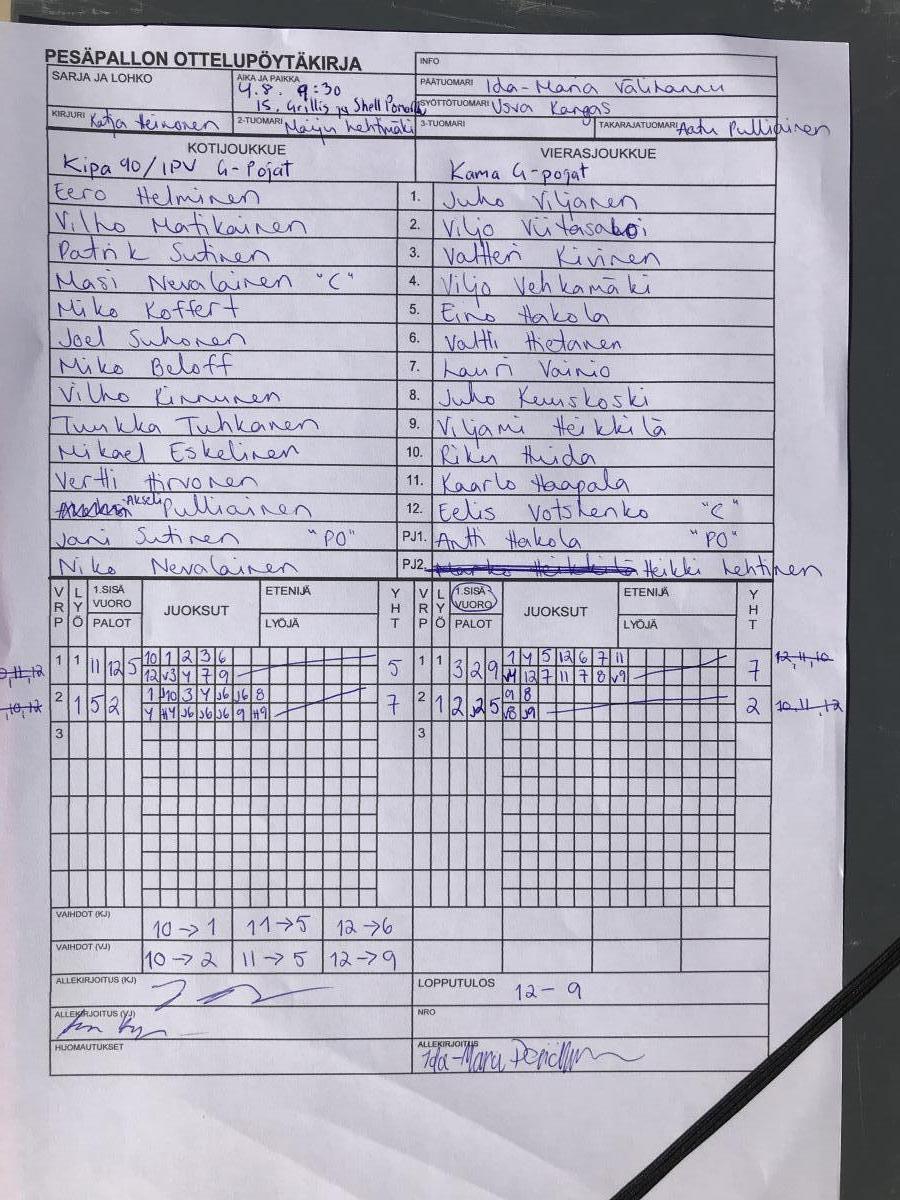 PESÄPALLON OTTELUPÖYTÄKIRJA
INFO
SARJA JA LOHKO
AIKA JA PAIKKA
4.8. 9:30
15. Grillis ja Shell
PÄÄTUOMARI Ida-Maria
SYÖTTÖTUOMARI Usva Kangas
KIRJURI Katja Heinonen
2-TUOMARI Maiju Lehtimäki
3-TUOMARI
TAKARAJATUOMARI Aatu Pulliainen
KOTIJOUKKUE
VIERASJOUKKUE
Kipa 90/IPV G-Pojat
Kama G-pojat
Eero Helminen 1. Juho Viljanen
Vilho Matikainen 2. Viljo
Patrik Sutinen 3. Valtteri Kivinen
Masi Nevalainen "C" 4. Viljo Vehkamäki
Miko Koffert 5. Eino Hakola
Joel Suhonen 6. Valtti Hietanen
Miko Beloff 7. Lauri Vainio
Vilho Kinnunen 8. Juho
Tuukka Tuhkanen 9. Viljami Heikkilä
Mikael Eskelinen 10. Riku Huida
Vertti Hirvonen 11. Kaarlo Haapala
Akseli Pulliainen 12. Eelis Votshenko "C"
Jani Sutinen "PO" PJ1. Antti Hakola "PO"
Niko Nevalainen PJ2. Marko Heikkilä Heikki Lehtinen
VRP LYÖ 1.SISÄ VUORO PALOT JUOKSUT ETENIJÄ LYÖJÄ YHT VRP LYÖ 1.SISÄ VUORO PALOT JUOKSUT ETENIJÄ LYÖJÄ YHT
1 1 11 12 5 10 1 2 3 6 5 1 1 3 2 9 1 4 5 12 6 7 11 7 12,11,10
12 v3 4 7 9 12 7 11 7 8 v9
2 1 5 2 1 J10 3 4 J6 J6 8 7 2 1 2 5 9 8 2 10,11,12
4 J6 J6 J6 9 v8 J9
3 3
VAIHDOT (KJ) 10→1 11→5 12→6
VAIHDOT (VJ) 10→2 11→5 12→9
ALLEKIRJOITUS (KJ)
LOPPUTULOS 12-9
ALLEKIRJOITUS (VJ)
NRO
HUOMAUTUKSET
ALLEKIRJOITUS